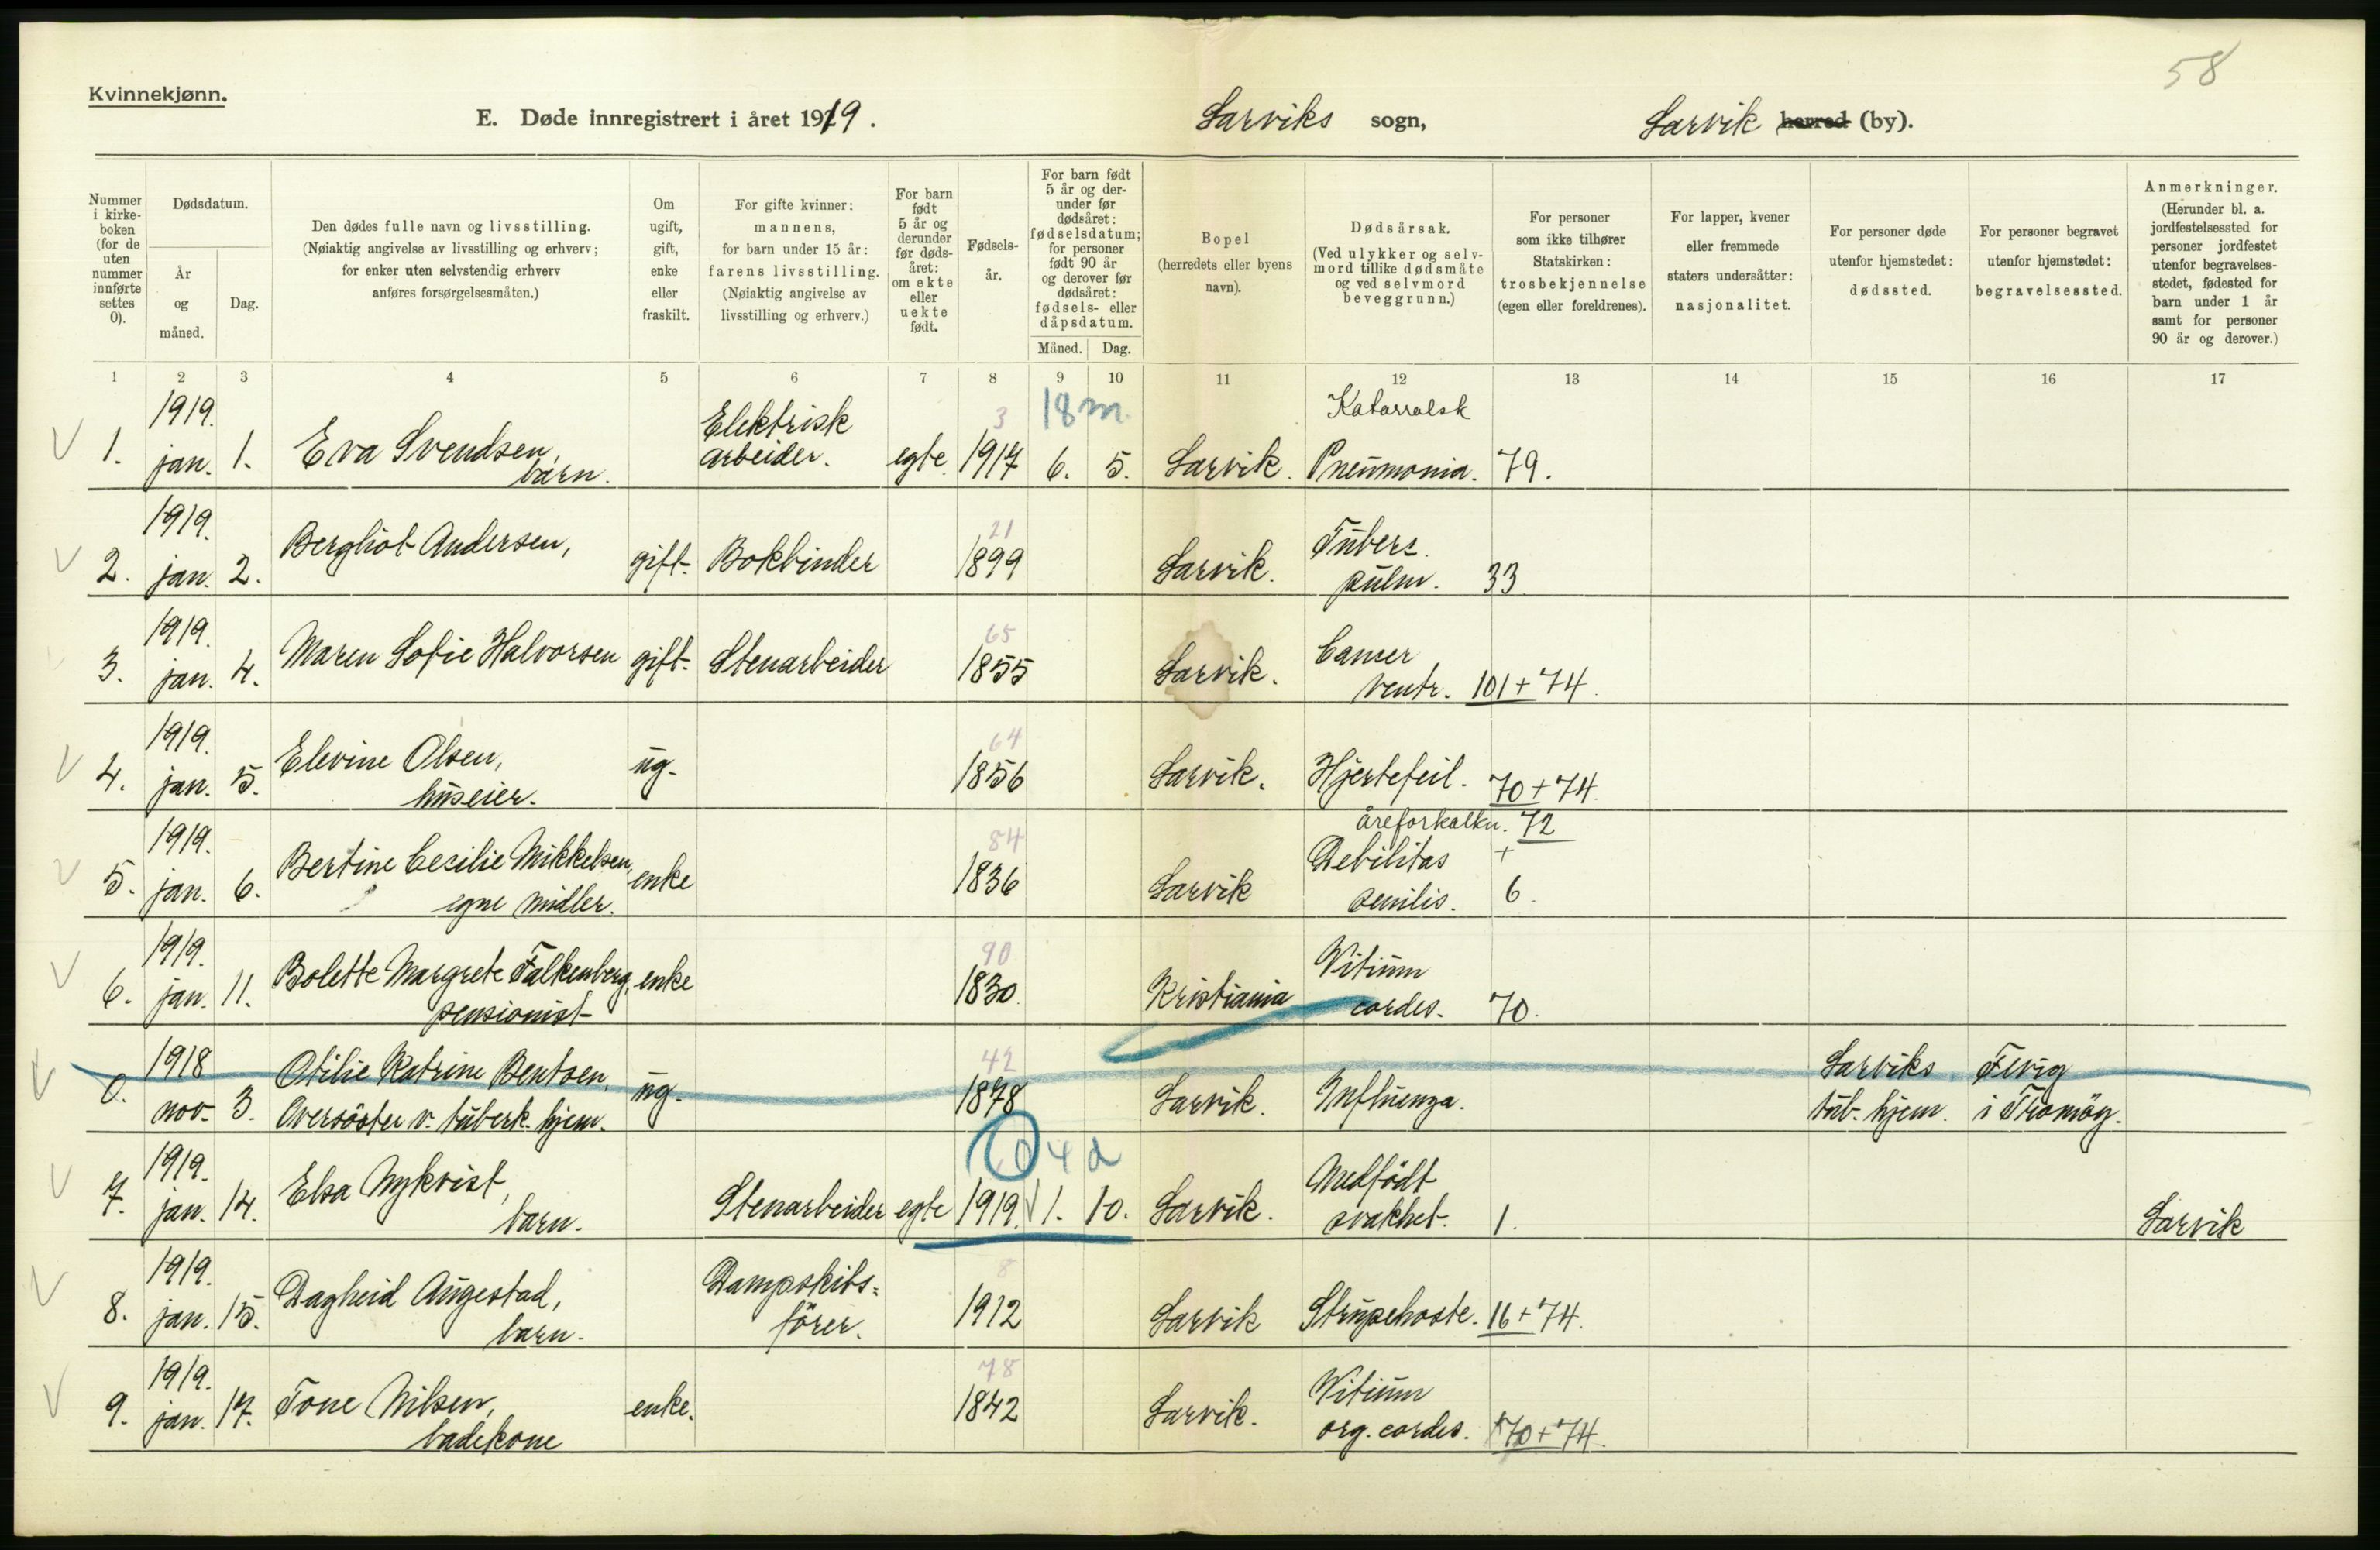 58
Kvinnekjønn.
E. Døde innregistrert i året 1919. Larviks sogn, Larvik herred (by).
Nummer i kirkeboken (for de uten nummer innførte settes 0).
Dødsdatum.
År og måned.
Dag.
Den dødes fulle navn og livsstilling.
(Nøiaktig angivelse av livsstilling og erhverv;
for enker uten selvstendig erhverv
anføres forsørgelsesmåten.)
Om ugift, gift, enke eller fraskilt.
For gifte kvinner:
mannens,
for barn under 15 år:
farens livsstilling.
(Nøiaktig angivelse av
livsstilling og erhverv.)
For barn født 5 år og derunder før dødsåret: om ekte eller uekte født.
Fødselsår.
For barn født 5 år og derunder før dødsåret: fødselsdatum; for personer født 90 år og derover før dødsåret: fødsels- eller dåpsdatum.
Måned. Dag.
Bopel
(herredets eller byens
navn).
Dødsårsak.
(Ved ulykker og selvmord tillike dødsmåte og ved selvmord beveggrunn.)
For personer
som ikke tilhører
Statskirken:
trosbekjennelse
(egen eller foreldrenes).
For lapper, kvener
eller fremmede
staters undersåtter:
nasjonalitet.
For personer døde
utenfor hjemstedet:
dødssted.
For personer begravet
utenfor hjemstedet:
begravelsessted.
Anmerkninger.
(Herunder bl. a. jordfestelsessted for personer jordfestet utenfor begravelsesstedet, fødested for barn under 1 år samt for personer 90 år og derover.)
1 2 3 4 5 6 7 8 9 10 11 12 13 14 15 16 17
1919. Elektrisk 3 18 m. Katarralsk
1. jan. 1. Eva Svendsen, barn. arbeider. egte 1917 6. 5. Larvik. Pneumonia. 79.
1919. Bergliot Andersen, 21 Tuberc.
2. jan. 2. gift. Bokbinder 1899 Larvik. pulm. 33
1919. Maren Sofie Halvorsen 65 Cancer
3. jan. 4. gift. Stenarbeider 1855 Larvik. ventr. 101 + 74.
1919. Elevine Olsen, 64
4. jan. 5. huseier. ug. 1856 Larvik. Hjertefeil. 70 + 74.
1919. Bertine Cecilie Mikkelsen, 84 åreforkalkn. 72
Debilitas +
5. jan. 6. egne midler. enke 1836 Larvik senilis. 6.
1919. Bolette Margrete Falkenberg, enke 90 Vitium
6. jan. 11. pensionist 1830. Kristiania cordis. 70.
1918 Otilie Katrine Bentsen, 42 Larviks Fevig
0. nov. 3. Oversöster v. tuberk. hjem. ug. 1878 Larvik. Influenza. tub. hjem. i Tromöy.
1919. Elsa Nykvist, 0 4 d Medfödt
7. jan. 14. barn. Stenarbeider egte 1919. 1. 10. Larvik. svakhet. 1. Larvik
1919. Dagheid Augestad, Dampskibs= 8
8. jan. 15. barn. förer. 1912 Larvik Strupehoste. 16 + 74.
1919. Tone Nilsen, 78 Vitium
9. jan. 17. badekone enke. 1842 Larvik. org. cordis. 70 + 74.